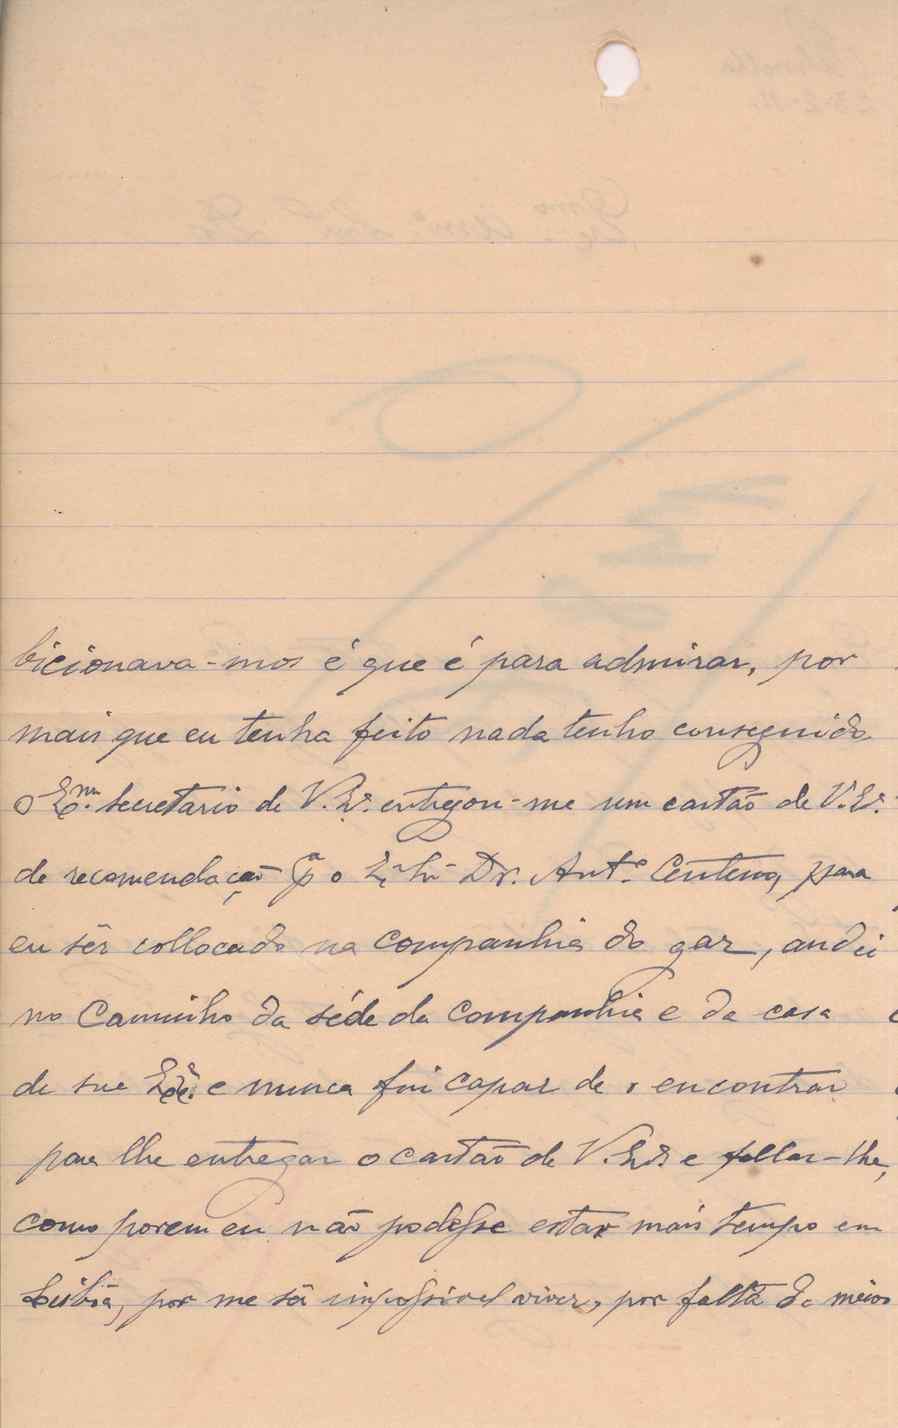 bicionava-mos é que é para admirar, por
mais que eu tenha feito nada tenho conseguido
o Exmo. secretario de V. Exª. entregou-me um cartão de V. Exª.
de recomendação pª o Dr. Antº. Centeno, para
eu sêr collocado na companhia do gaz, andei
no Caminho da séde da Companhia e da casa
de sua Exª. e nunca fui capaz de o encontrar
para lhe entregar o cartão de V. Exª. e fallar-lhe,
como porem eu não podesse estar mais tempo em
Lisbôa, por me sêr impossivel viver, por falta de meios